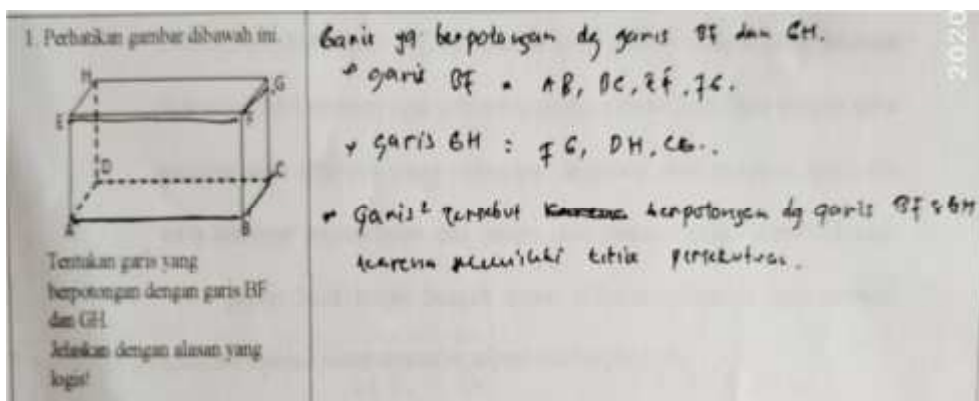 1. Perhatikan gambar dibawah ini.
H
G
E
F
D
C
A
B
Tentukan garis yang
berpotongan dengan garis BF
dan GH.
Jelaskan dengan alasan yang
logis!
Garis yg berpotongan dg garis BF dan GH.
garis BF = AB, BC, EF, FG.
garis GH : FG, DH, CG..
Garis² tersebut karena berpotongan dg garis BF & GH
karena memiliki titik persekutuan.
2020